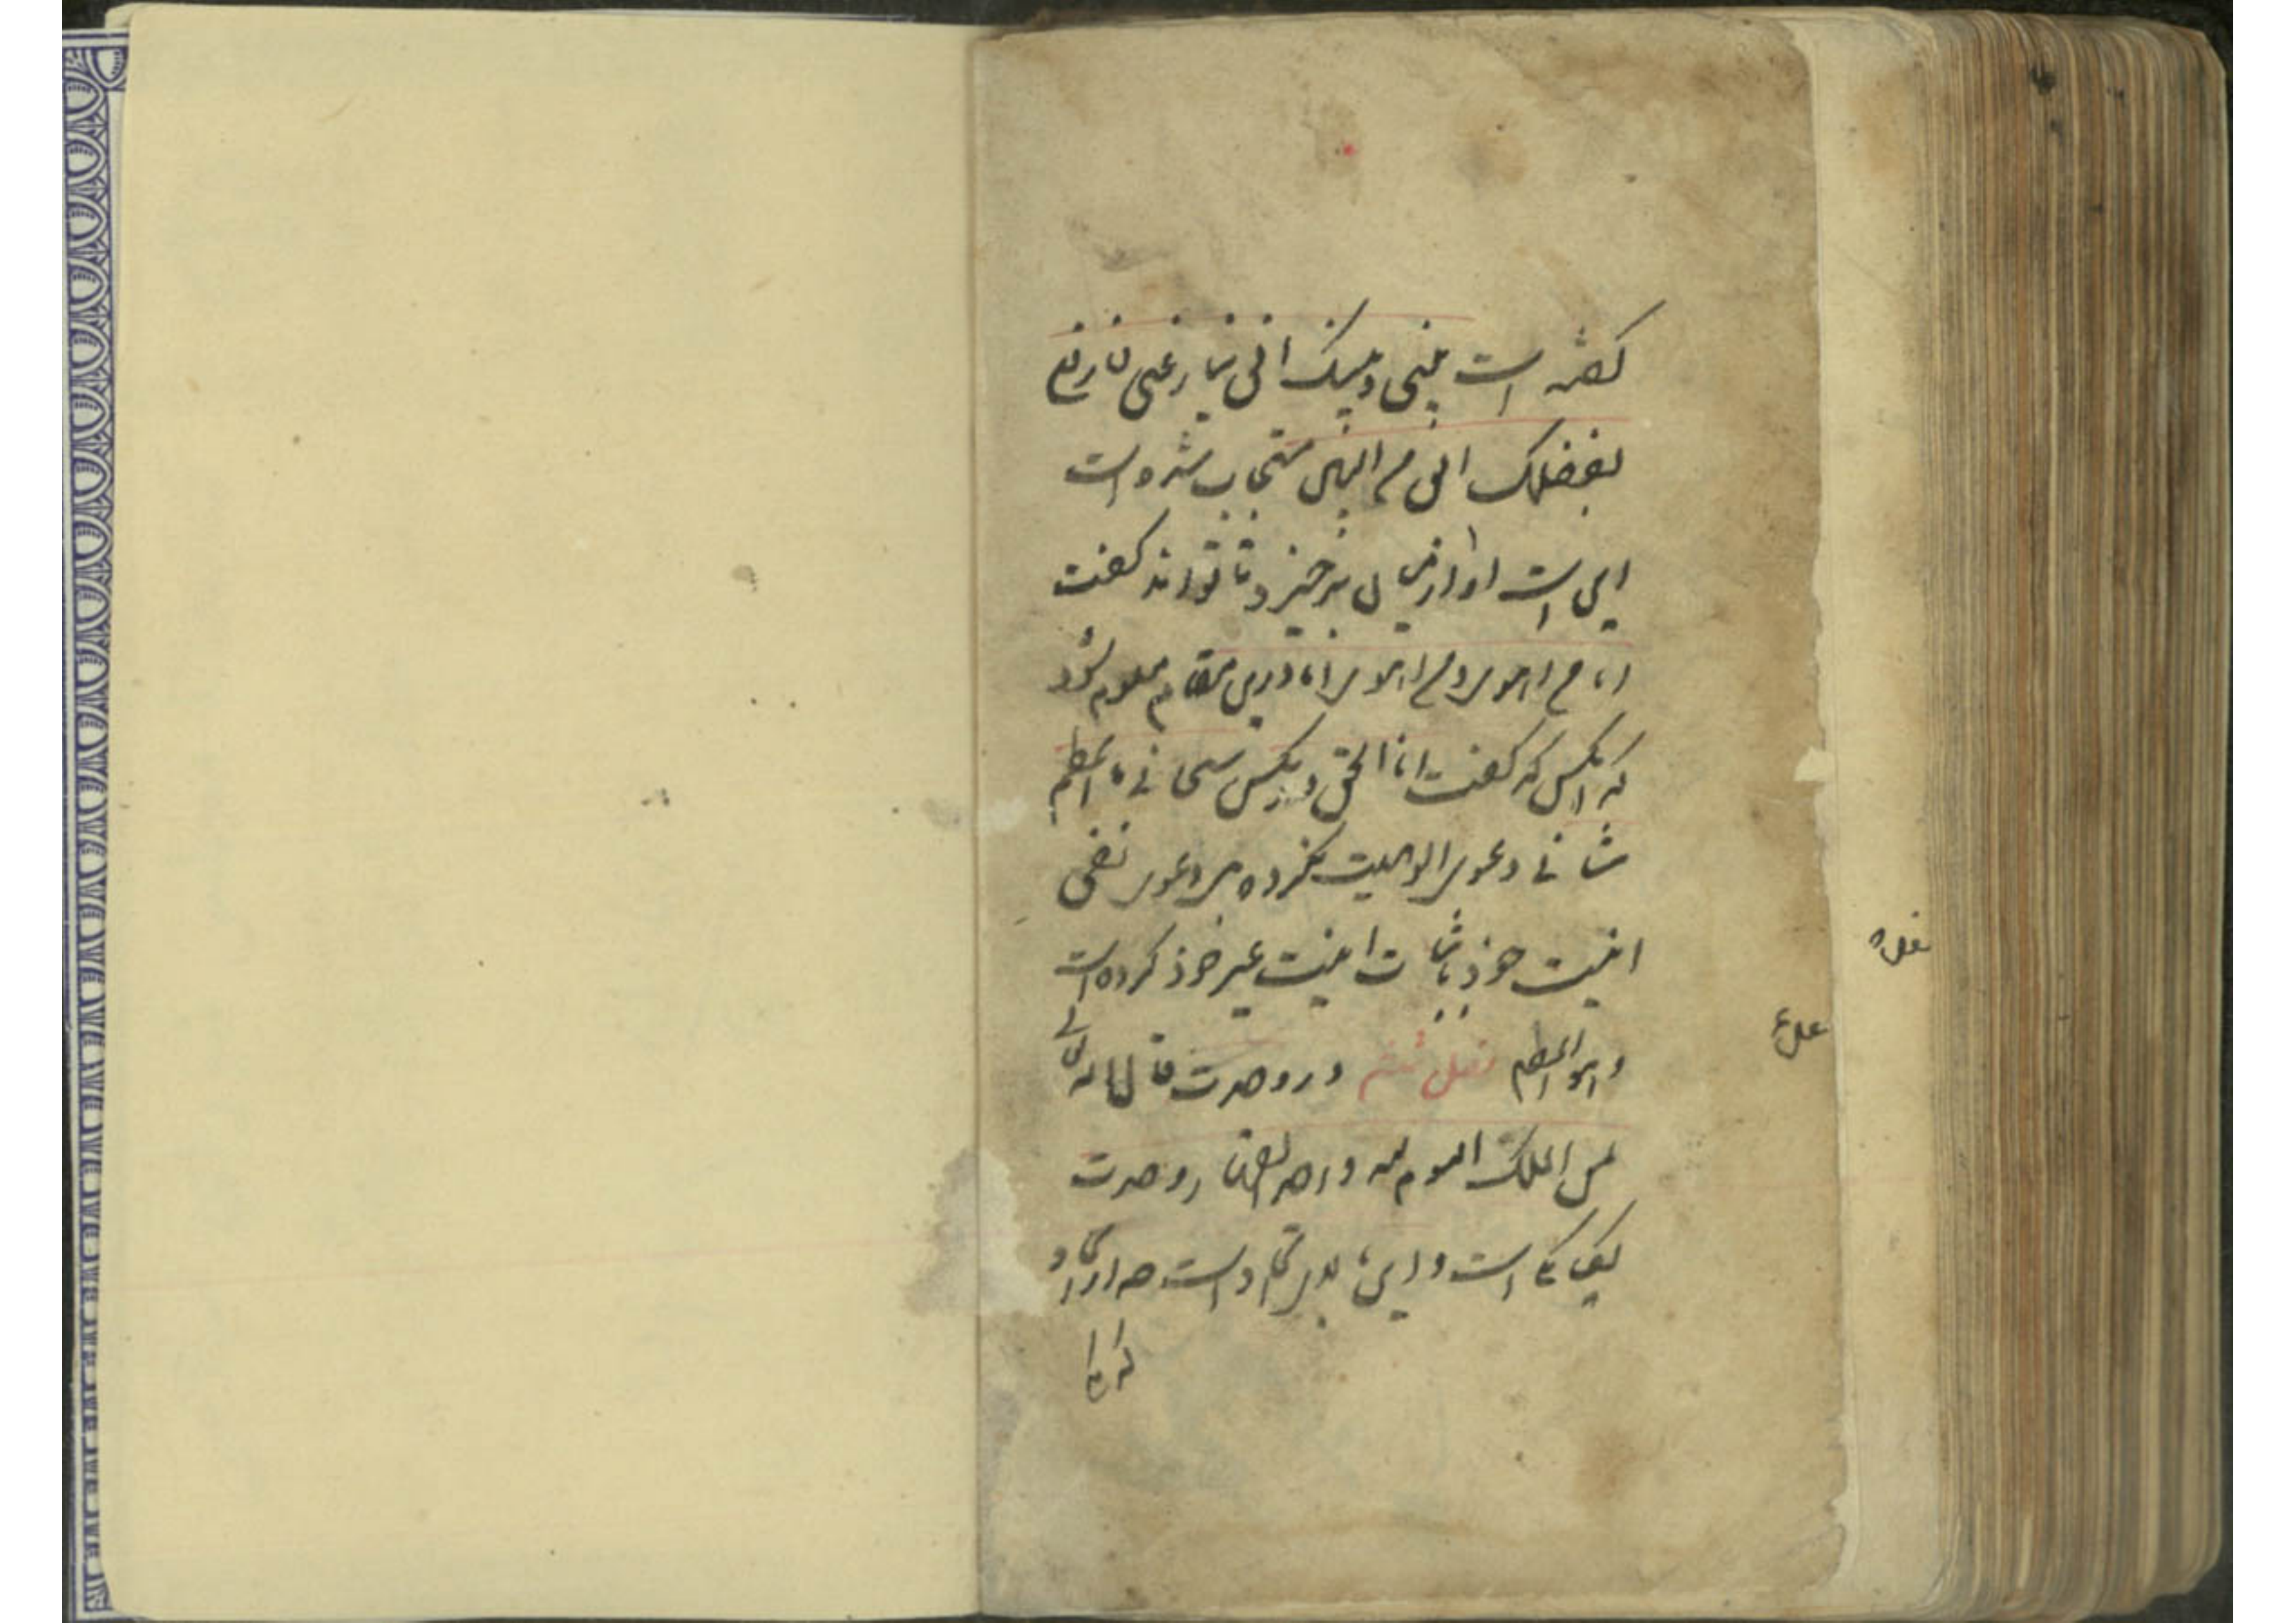 گفته است بینی و بینک انی ینازعنی فارفع
بفضلک انی من البین مستجاب شده است
این است او از میان برخیزد تا تواند گفت
انا من اهوی و من اهوی انا درین مقام معلوم شود
که انکس که گفت انا الحق و یکس سبحانی ما اعظم
شانی دعوی الوهیت نکرده بر دعوی نفی
انیت خوذ باثبات انیت غیر خوذ کرده است
وهو العظیم فصل ششم در وحدت قال الله تعالی
لمن الملک الیوم لله واحد القهار وحدت
یکانکی است و این بالای اتحاد است جه از اتحاد